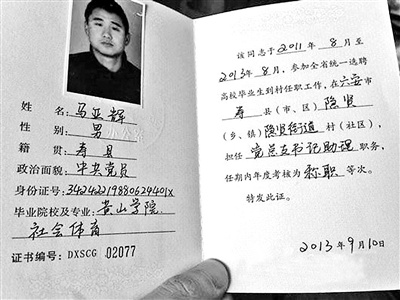 姓名:马亚辉
性别:男
籍贯:寿县
政治面貌:中共党员
身份证号:34242219880624401X
毕业院校及专业:黄山学院
社会体育
证书编号:DXSCG 02077
该同志于2011年8月至
2013年8月,参加全省统一选聘
高校毕业生到村任职工作,在六安市
寿县(市、区)隐贤
(乡、镇)隐贤街道村(社区),
担任党总支书记助理职务,
任期内年度考核为称职等次。
特发此证。
2013年9月10日